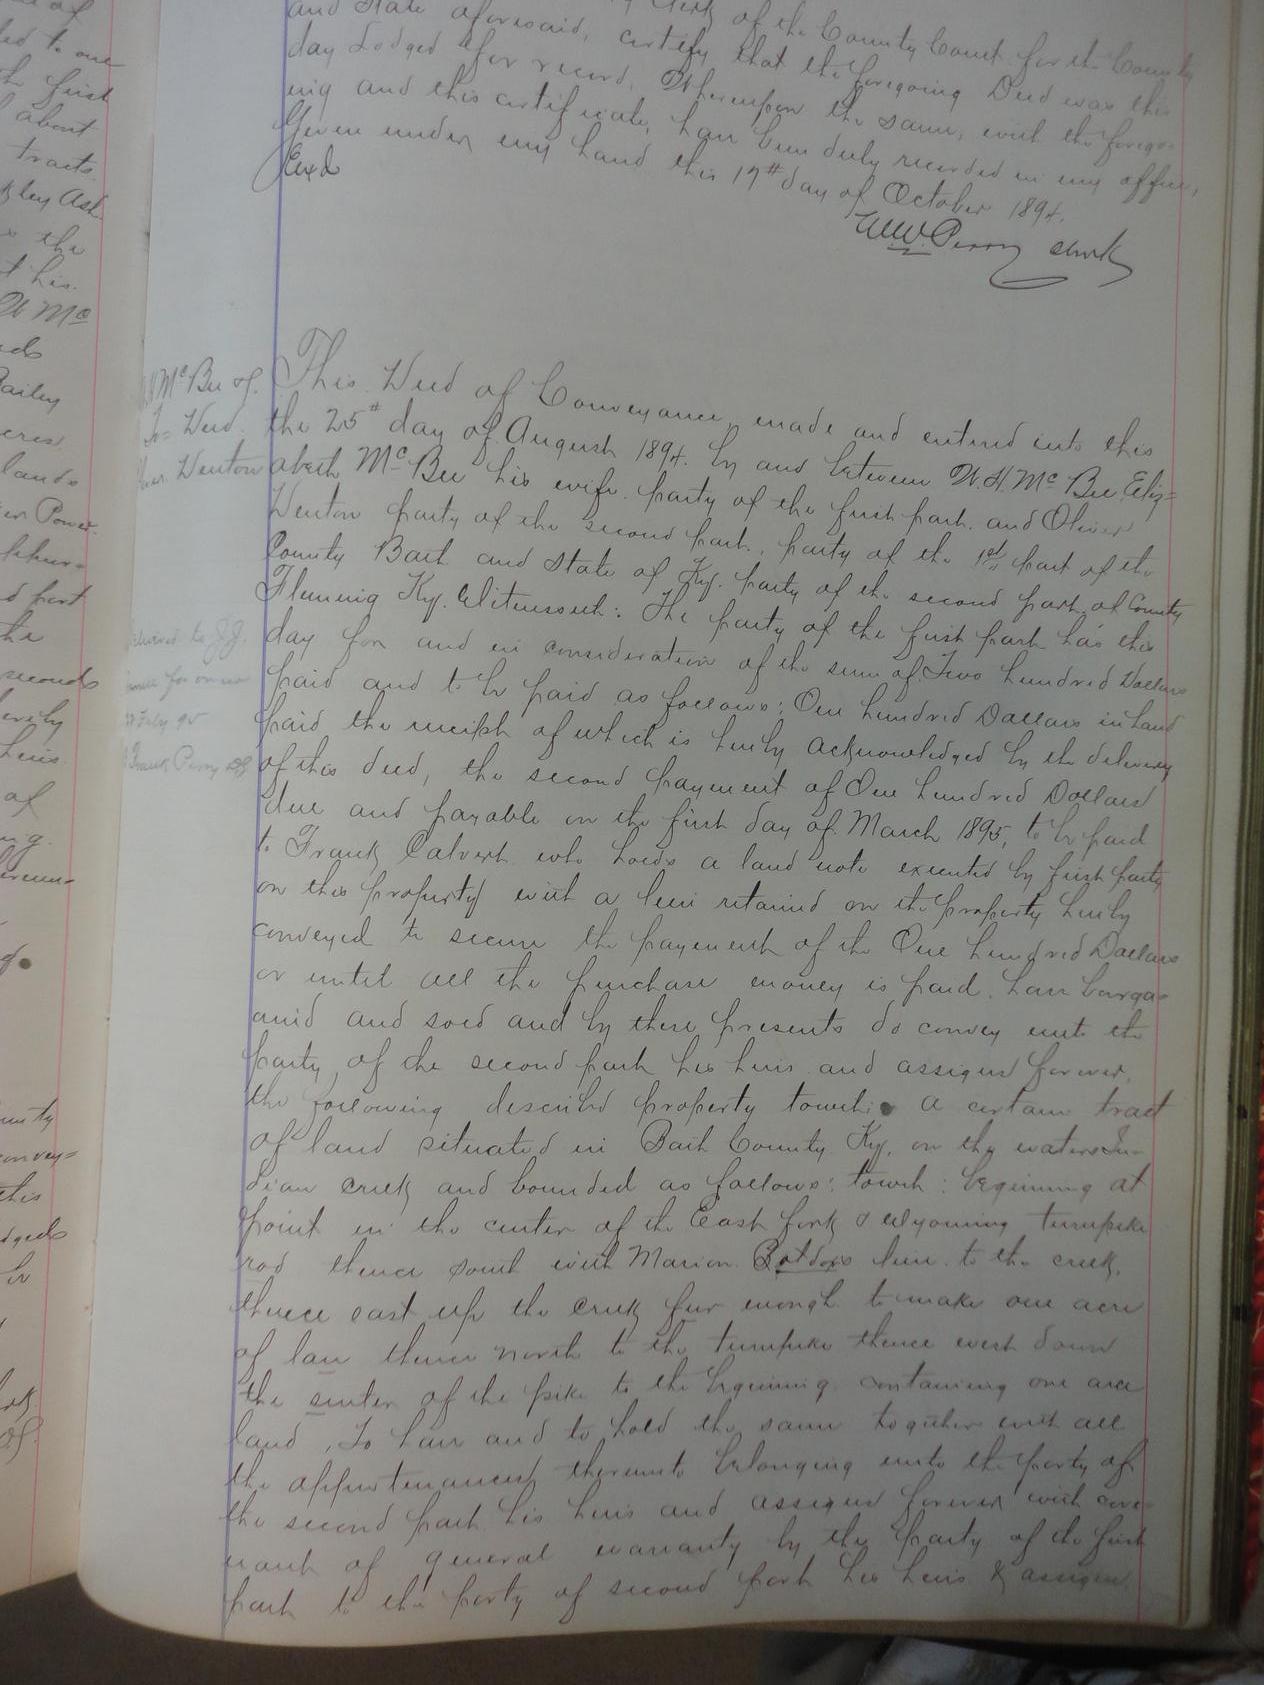 and State aforesaid, certify that the foregoing Deed was this
Clerk of the County Court for the County
day lodged for record. Whereupon the same, with the forego-
ing and this certificate, has been duly recorded in my office,
Given under my hand this 17th day of October 1894.
Exd
W.W. Perry Clerk
McBee &.
To= Deed.
Denton
This Deed of Conveyance, made and entered into this
the 25th day of August 1894. by and between W.H. McBee, Eliz=
abeth McBee his wife party of the first part. and Oliver
Denton party of the second part, party of the 1st part of the
County Bath and State of Ky. party of the second part, of County
Fleming Ky. Witnesseth: The party of the first part has this
day for and in consideration of the sum of Two hundred Dollars
paid and to be paid as follows: One hundred Dollars in hand
paid the receipt of which is hereby acknowledged by the delivery
of this deed, the second payment of One hundred Dollars
due and payable on the first day of March 1895, to be paid
to Frank Calvert who holds a land note executed by first party
on this property with a lien retained on the property hereby
conveyed to secure the payment of the One hundred Dollars
or until all the purchase money is paid. has barga-
anid and sold and by these presents do convey unto the
party of the second part his heirs and assigns forever,
the following described property towit: a certain tract
of land situated in Bath County Ky, on the waters In-
dian creek and bounded as follows: towit: beginning at
point in the center of the East fork & Wyoming turnpike
rod thence south with Marion line to the creek,
thence east up the creek fur enough to make one acre
of lan thence north to the turnpike thence west down
the senter of the pike to the beginning containing one acre
land, To have and to hold the same together with all
the appurtenances thereunto belonging unto the party of
the second part his heirs and assigns forever with cove-
nant of general warranty by the party of the first
part to the party of second part his heirs & assigns
delivered to J.J.
July 95
Frank Perry